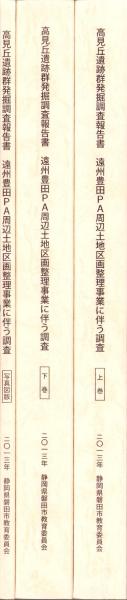 高見丘遺跡群発掘調査報告書　遠州豊田ＰＡ周辺土地区画整理事業に伴う調査　上巻　二〇一三年　静岡県磐田市教育委員会
高見丘遺跡群発掘調査報告書　遠州豊田ＰＡ周辺土地区画整理事業に伴う調査　下巻　二〇一三年　静岡県磐田市教育委員会
高見丘遺跡群発掘調査報告書　遠州豊田ＰＡ周辺土地区画整理事業に伴う調査　写真図版　二〇一三年　静岡県磐田市教育委員会